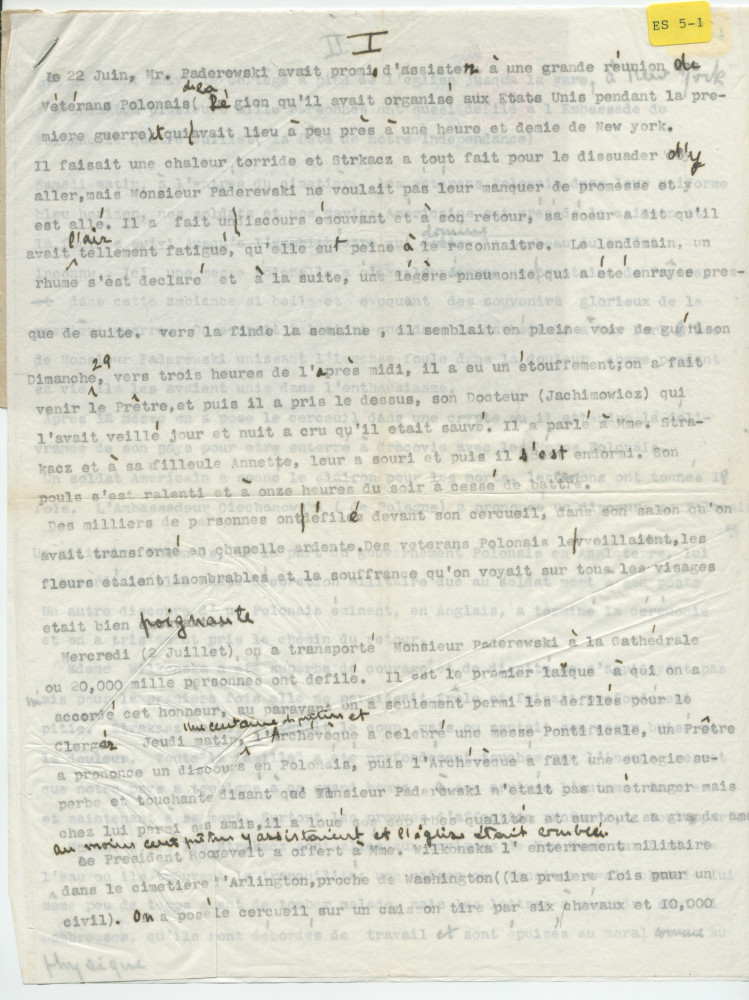 ES 5-1
I
Le 22 Juin, Mr. Paderewski avait promi, d'assister à une grande réunion de
Vétérans Polonais( de la Légion qu'il avait organisé aux Etats Unis pendant la pre-
miere guerre)et qui avait lieu à peu près à une heure et demie de New york.
Il faisait une chaleur torride et Strkacz a tout fait pour le dissuader d'y
aller,mais Monsieur Paderewski ne voulait pas leur manquer de promesse et y
est allé. Il a fait un discours émouvant et à son retour, sa soeur a dit qu'il
avait l'air tellement fatigué, qu'elle eut peine à le reconnaitre. Le lendemain, un
rhume s'ést declaré et à la suite, une légère pneumonie qui a été enrayée pres-
que de suite. vers la finde la semaine , il semblait en pleine voie de guérison
Dimanche, 29 vers trois heures de l'après midi, il a eu un étouffement;on a fait
venir le Prêtre,et puis il a pris le dessus, son Docteur (Jachimowicz) qui
l'avait veillé jour et nuit a cru qu'il etait sauvé. Il a parlé à Mme. Stra-
kacz et à sa filleule Annette, leur a souri et puis il s'est endormi. Son
pouls s'est ralenti et à onze heures du soir a cessé de battre.
Des milliers de personnes ont défilé devant son cercueil, dans son salon qu'on
avait transformé en chapelle ardente.Des veterans Polonais le veillaient,les
fleurs etaient inombrables et la souffrance qu'on voyait sur tous les visages
etait bien poignante
Mercredi (2 Juillet) on a transporté Monsieur Paderewski à la Cathédrale
ou 20,000 mille personnes ont defilé. Il est le premier laïque à qui on a
accordé cet honneur, au paravant on a seulement permi les défilés pour le
Clergé. Jeudi matin, une centaine de prêtres et l'Archevêque a célebré une messe Pontificale, un Prêtre
a prononce un discours en Polonais, puis l'Archévêque a fait une eulogie su-
perbe et touchante disant que Monsieur Paderewski n'etait pas un étranger mais
chez lui parmi ses amis,il a loué ses qualités et surtout sa grande ame
au moins cent prêtres y assistaient et l'église était comble.
Le President Roosevelt a offert à Mme. Wilkonska l' enterrement militaire
dans le cimetière d'Arlington,proche de Washington((la prmiere fois pour un
civil). On a posé le cercueil sur un caisson tire par six chevaux et 10,000
physique